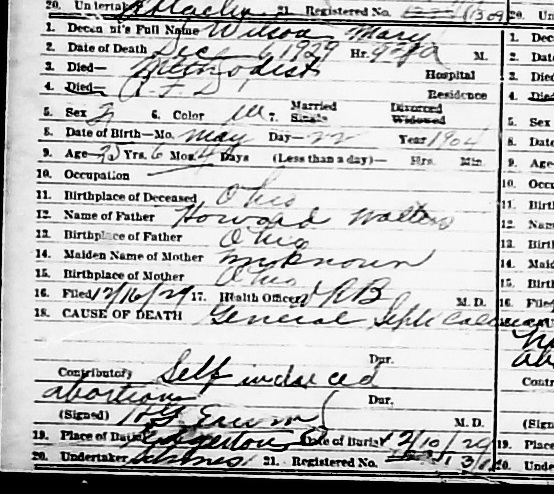 20. Undertaker 21. Registered No. 1309 20. Un
1. Deceden nt's Full Name Wilson Mary 1. Dece
2. Date of Death Dec 6, 1929 Hr. M. 2. Date
3. Died— Methodist Hospital 3. Died
4. Died— Residence 4. Died
5. Sex F 6. Color W 7. Married Single Divorced Widowed 5. Sex
8. Date of Birth—Mo. May Day— 22 Year 1904 8. Date
9. Age— 25 Yrs. 6 Mos. 14 Days (Less than a day)— Hrs. Min. 9. Age
10. Occupation 10. Occu
11. Birthplace of Deceased Ohio 11. Birth
12. Name of Father Howard Walters 12. Nam
13. Birthplace of Father Ohio 13. Birt
14. Maiden Name of Mother unknown 14. Maid
15. Birthplace of Mother Ohio 15. Birth
16. Filed 12/16/29 17. Health Officer RB M. D. 16. Filed
18. CAUSE OF DEATH General Septicaemia
Dur.
Contributory Self induced Contr
abortion Dur.
(Signed) M. D. (Sign
19. Place of Burial Date of Burial 12/10/29 19. Place
20. Undertaker 21. Registered No. 20. Unde